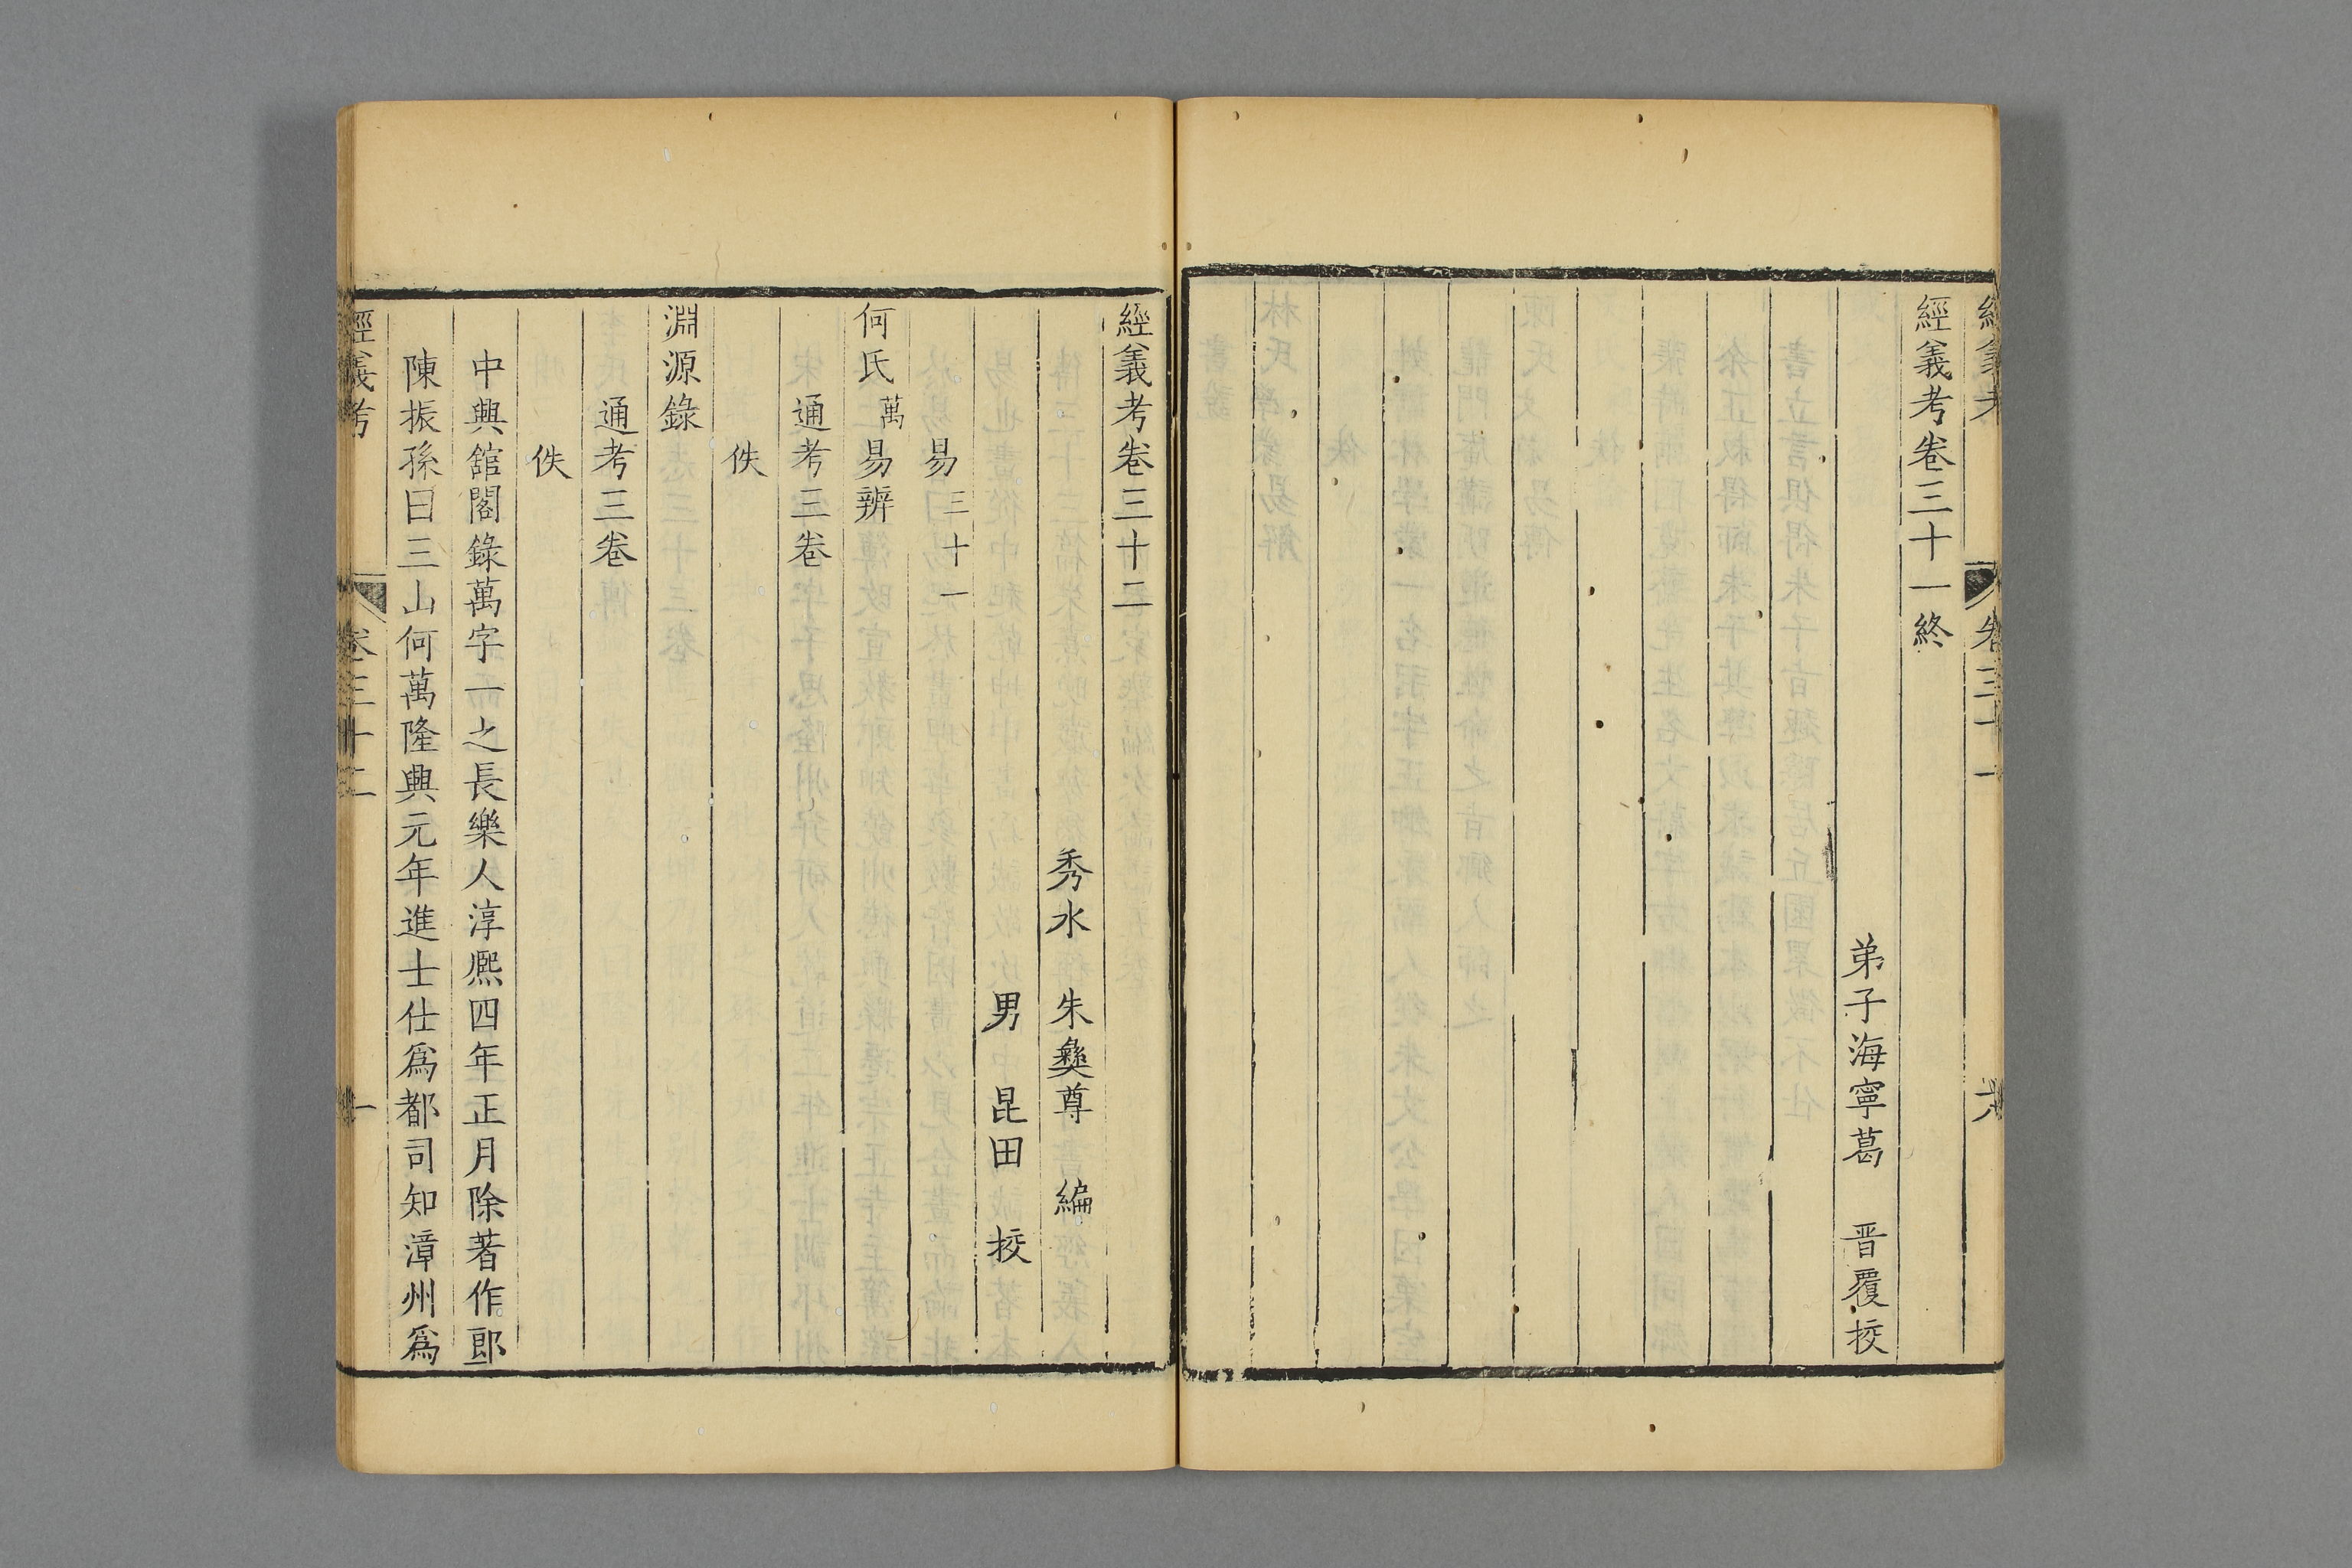 經義考 卷三十一 六
經義考卷三十一終
弟子海寧葛 晋覆挍
經義考卷三十二
秀水 朱彝尊 編
男 昆田 挍
易三十一
何氏萬易辨
通考三卷
佚
淵源錄
通考三卷
佚
中興舘閣錄萬字一之長樂人淳熈四年正月除著作郎
陳振孫曰三山何萬隆興元年進士仕爲都司知漳州爲
經義考 卷三十二 一